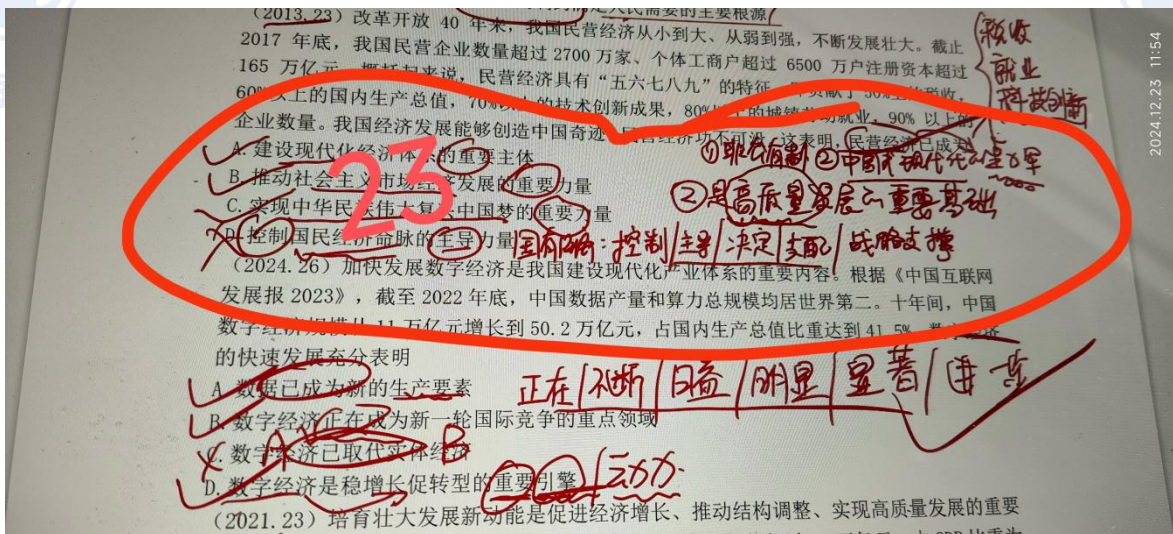 人民需要的主要根源
（2013.23）改革开放 40 年来，我国民营经济从小到大、从弱到强，不断发展壮大。截止
2017 年底，我国民营企业数量超过 2700 万家、个体工商户超过 6500 万户注册资本超过
165 万亿元。概括起来说，民营经济具有“五六七八九”的特征，
60%以上的国内生产总值，70%以上的技术创新成果，80%以上的城镇劳动就业，90% 以上的
企业数量。我国经济发展能够创造中国奇迹，民营经济功不可没。这表明，民营经济已成为
税收
就业
科技创新
A. 建设现代化经济体系的重要主体
B. 推动社会主义市场经济发展的重要力量
C. 实现中华民族伟大复兴中国梦的重要力量
D. 控制国民经济命脉的主导力量
23
②是高质量发展的重要基础
控制/主导/决定/支配/战略支撑
（2024.26）加快发展数字经济是我国建设现代化产业体系的重要内容。根据《中国互联网
发展报 2023》，截至 2022 年底，中国数据产量和算力总规模均居世界第二。十年间，中国
数字经济规模从 11 万亿元增长到 50.2 万亿元，占国内生产总值比重达到 41.5%，数字经济
的快速发展充分表明
A. 数据已成为新的生产要素
正在/不断/日益/明显/显著/进一步
B. 数字经济正在成为新一轮国际竞争的重点领域
C. 数字经济已取代实体经济
A B
D. 数字经济是稳增长促转型的重要引擎
/动力
（2021.23）培育壮大发展新动能是促进经济增长、推动结构调整、实现高质量发展的重要
2024.12.23 11:54